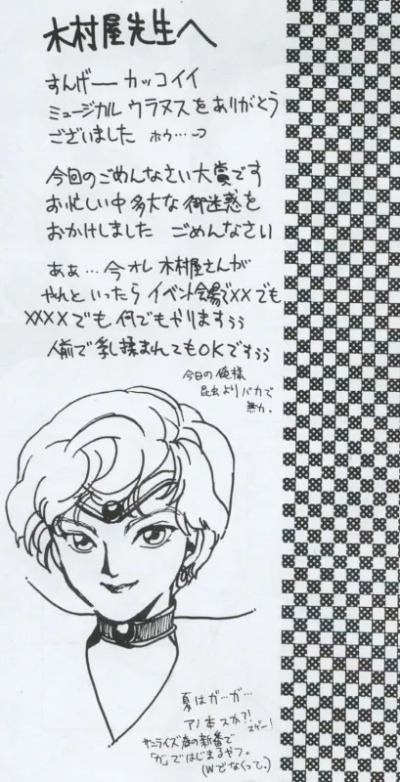 木村屋先生へ
すんげー カッコイイ
ミュージカル ウラヌスをありがとう
ございました ホゥ…
今回のごめんなさい大賞です
お忙しい中多大な御迷惑を
おかけしました ごめんなさい
ああ…今オレ木村屋さんが
やれといったら イベント会場で××でも
××××でも 何でもやりますぅぅ
人前で乳揉まれてもOKですぅぅ
今日の俺様
昆虫よりバカで
無力。
夏はガ…ガ…
アノ本スか?!
スゲー!
サンライズ様の新番で
「ガ」ではじまるやつ。
(Wでなくって。)